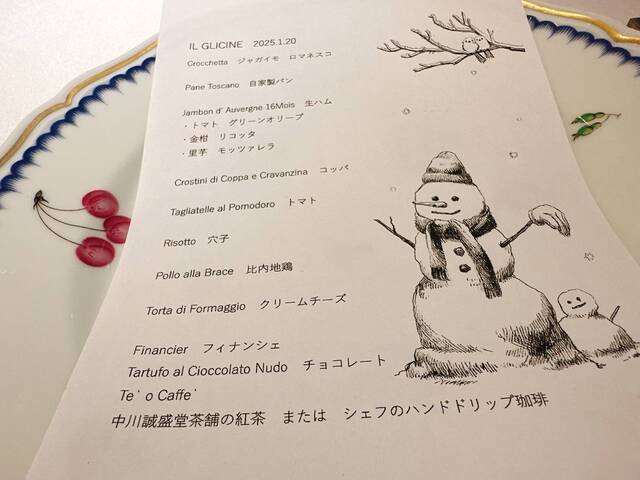 IL GLICINE 2025.1.20
Crocchetta ジャガイモ ロマネスコ
Pane Toscano 自家製パン
Jambon d' Auvergne 16Mois 生ハム
・トマト グリーンオリーブ
・金柑 リコッタ
・里芋 モッツァレラ
Crostini di Coppa e Cravanzina コッパ
Tagliatelle al Pomodoro トマト
Risotto 穴子
Pollo alla Brace 比内地鶏
Torta di Formaggio クリームチーズ
Financier フィナンシェ
Tartufo al Cioccolato Nudo チョコレート
Te` o Caffe`
中川誠盛堂茶舗の紅茶 または シェフのハンドドリップ珈琲